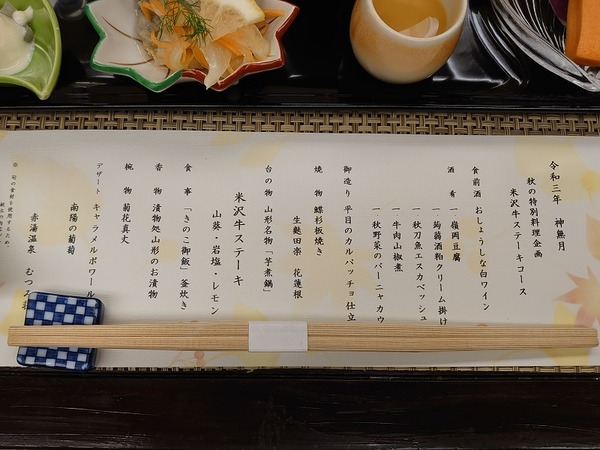 令和三年 神無月
秋の特別料理企画
米沢牛ステーキコース
食前酒 おしょうしな白ワイン
酒肴 一 嶺岡豆腐
一 蒟蒻酒粕クリーム掛け
一 秋刀魚エスカベッシュ
一 牛肉山椒煮
一 秋野菜のバーニャカウ
御造り 平目のカルパッチョ仕立
焼物 鰹杉板焼き
生麩田楽 花蓮根
台の物 山形名物「芋煮鍋」
米沢牛ステーキ
山葵・岩塩・レモン
食事 「きのこ御飯」釜炊き
香物 漬物処山形のお漬物
椀物 菊花真丈
デザート キャラメルポワール
南陽の葡萄
赤湯温泉 むつみ荘